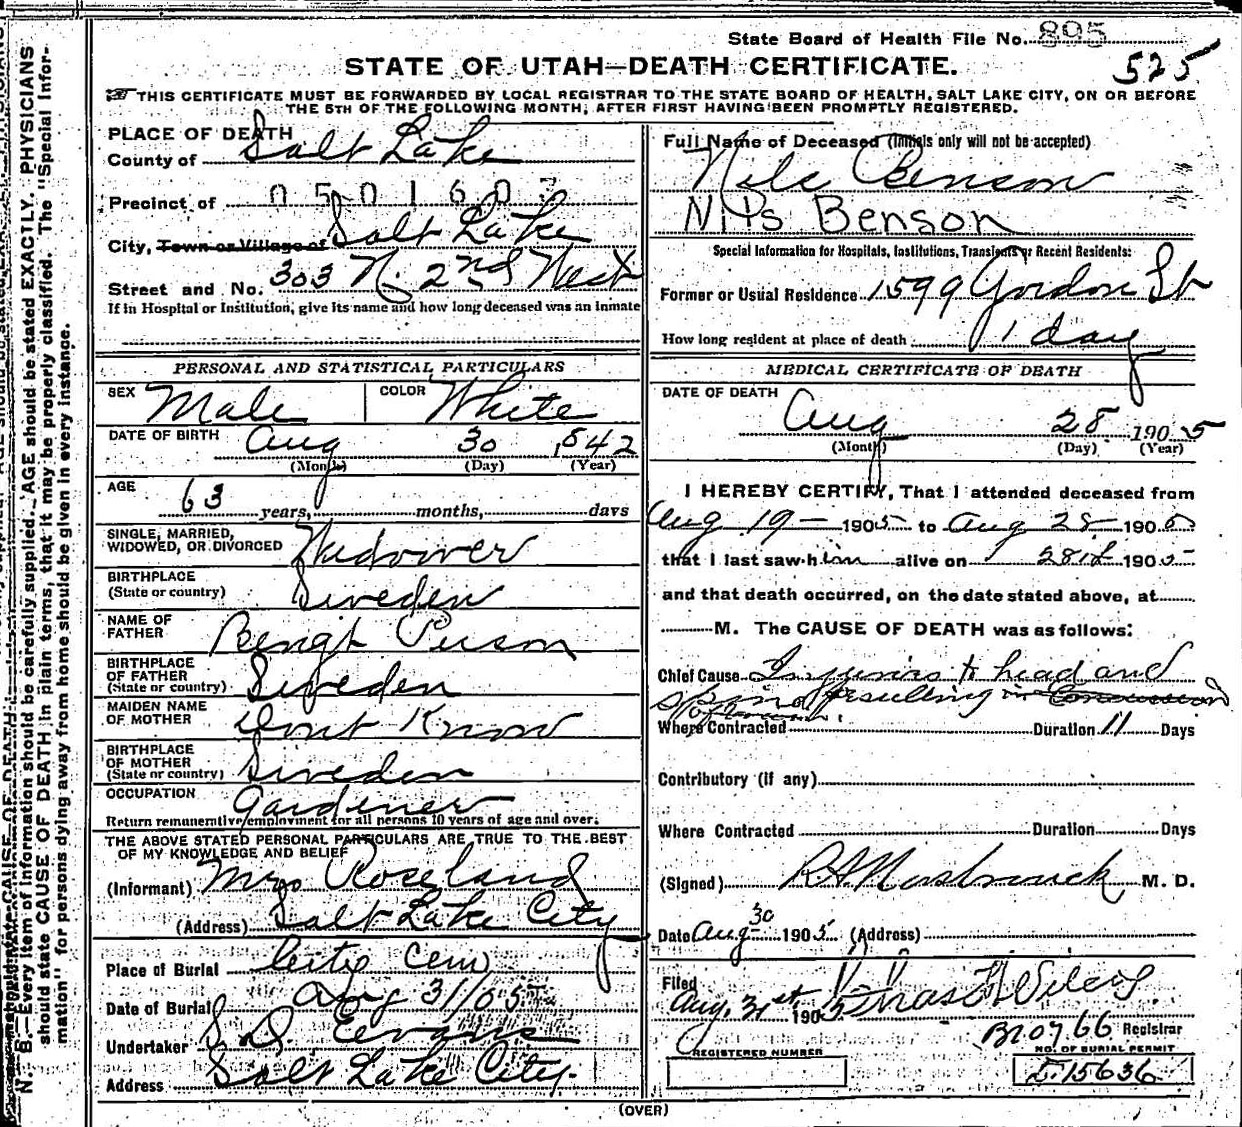 State Board of Health File No. 895
525
STATE OF UTAH—DEATH CERTIFICATE.
THIS CERTIFICATE MUST BE FORWARDED BY LOCAL REGISTRAR TO THE STATE BOARD OF HEALTH, SALT LAKE CITY, ON OR BEFORE
THE 5TH OF THE FOLLOWING MONTH, AFTER FIRST HAVING BEEN PROMPTLY REGISTERED.
N. B.—Every item of information should be carefully supplied. AGE should be stated EXACTLY. PHYSICIANS
should state CAUSE OF DEATH in plain terms, that it may be properly classified. The "Special Infor-
mation" for persons dying away from home should be given in every instance.
PLACE OF DEATH
County of Salt Lake
Precinct of 0501603
City, Town or Village of Salt Lake
Street and No. 303 N. 2nd West
If in Hospital or Institution, give its name and how long deceased was an inmate
PERSONAL AND STATISTICAL PARTICULARS
SEX Male COLOR White
DATE OF BIRTH Aug 30 1842
(Month) (Day) (Year)
AGE
63 years, months, days
SINGLE, MARRIED,
WIDOWED, OR DIVORCED Widower
BIRTHPLACE
(State or country) Sweden
NAME OF
FATHER Bengt Person
BIRTHPLACE
OF FATHER
(State or country) Sweden
MAIDEN NAME
OF MOTHER Dont Know
BIRTHPLACE
OF MOTHER
(State or country) Sweden
OCCUPATION Gardener
Return remunerative employment for all persons 10 years of age and over.
THE ABOVE STATED PERSONAL PARTICULARS ARE TRUE TO THE BEST
OF MY KNOWLEDGE AND BELIEF
(Informant) Mrs Roseland
(Address) Salt Lake City
Place of Burial City Cem
Date of Burial Aug 31/05
Undertaker S. D. Evans
Address Salt Lake City.
Full Name of Deceased (Initials only will not be accepted)
Nils Benson
Nils Benson
Special Information for Hospitals, Institutions, Transients or Recent Residents:
Former or Usual Residence 1599 Gordon St
How long resident at place of death 1 day
MEDICAL CERTIFICATE OF DEATH
DATE OF DEATH
Aug 28 1905
(Month) (Day) (Year)
I HEREBY CERTIFY, That I attended deceased from
Aug 19 - 1905 to Aug 28 - 1905
that I last saw him alive on 28th 1905
and that death occurred, on the date stated above, at
M. The CAUSE OF DEATH was as follows:
Chief Cause Injuries to head and
resulting in Concussion
Where Contracted Duration 11 Days
Contributory (if any)
Where Contracted Duration Days
(Signed) M. D.
Date Aug 30 1905 (Address)
Filed
Aug. 31st 1905
B10766 Registrar
REGISTERED NUMBER
NO. OF BURIAL PERMIT
15636
(OVER)